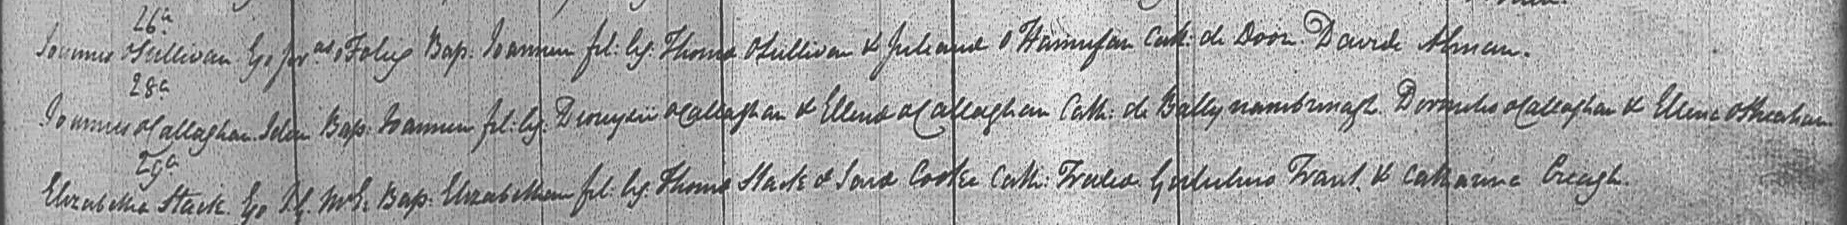 26a
Joannes OSullivan. Go Jer as OFoley Bap. Joannem fil: lg: Thomæ OSullivan & Julianæ O Hannifan Cath: de Doon. Davide Ahern.
28a
Joannes oCallaghan. Idem Bap: Joannem fil: lg: Dionysii oCallaghan & Ellenæ oCallaghan Cath: de Ballynambrinagh. Dermitio oCallaghan & Ellena OSheehan
29a
Elizabetha Stack. Go Bap: Elizabetham fil: lg: Thomæ Stack & Cooke Cath: Tralee. Gulielmo Trant, & Catharina Creagh.